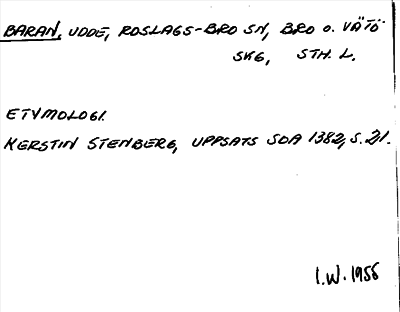 BARAN, UDDE, ROSLAGS-BRO SN, BRO O. VÄTÖ
SKG, STH. L.
ETYMOLOGI.
KERSTIN STENBERG, UPPSATS SOA 1382, S. 21.
I.W. 1956